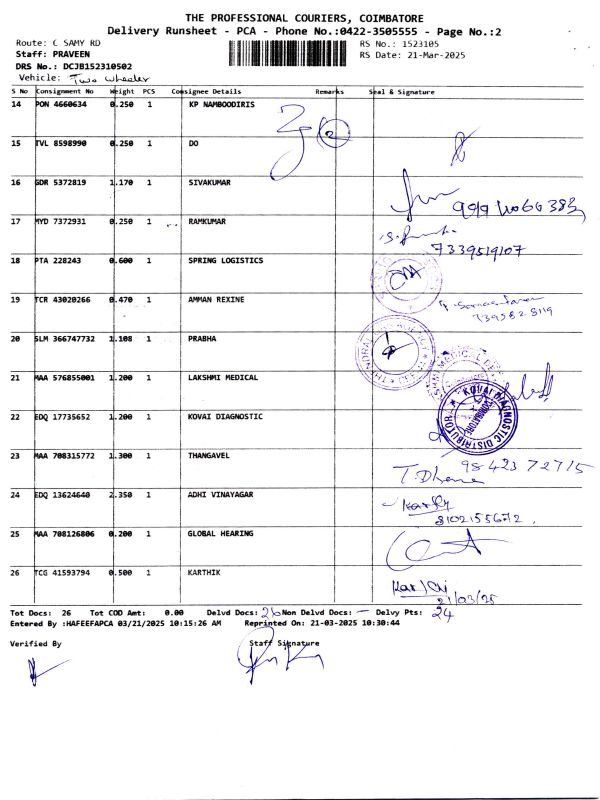 THE PROFESSIONAL COURIERS, COIMBATORE
Delivery Runsheet - PCA - Phone No.:0422-3505555 - Page No.:2
Route: C SAMY RD
RS No.: 1523105
Staff: PRAVEEN
RS Date: 21-Mar-2025
DRS No.: DCJB152310502
Vehicle: Two wheeler
S No Consignment No Weight PCS Consignee Details Remarks Seal & Signature
14 PON 4660634 0.250 1 KP NAMBOODIRIS
15 IVL 8598990 0.250 1 DO
16 GDR 5372819 1.170 1 SIVAKUMAR
17 MYD 7372931 0.250 1 RAMKUMAR
7339519107
18 PTA 228243 0.600 1 SPRING LOGISTICS
19 TCR 43020266 0.470 1 AMMAN REXINE
20 SLM 366747732 1.108 1 PRABHA
21 MAA 576855001 1.200 1 LAKSHMI MEDICAL
22 EDQ 17735652 1.200 1 KOVAI DIAGNOSTIC
KOVAI DIAGNOSTIC DISTRIBUTOR
COIMBATORE
23 MAA 708315772 1.300 1 THANGAVEL
98423 72715
24 EDQ 13624640 2.350 1 ADHI VINAYAGAR
8102155672
25 MAA 708126806 0.200 1 GLOBAL HEARING
26 TCG 41593794 0.500 1 KARTHIK
21/03/25
Tot Docs: 26 Tot COD Amt: 0.00 Delvd Docs: 26 Non Delvd Docs: — Delvy Pts: 24
Entered By :HAFEEFAPCA 03/21/2025 10:15:26 AM Reprinted On: 21-03-2025 10:30:44
Verified By Staff Signature